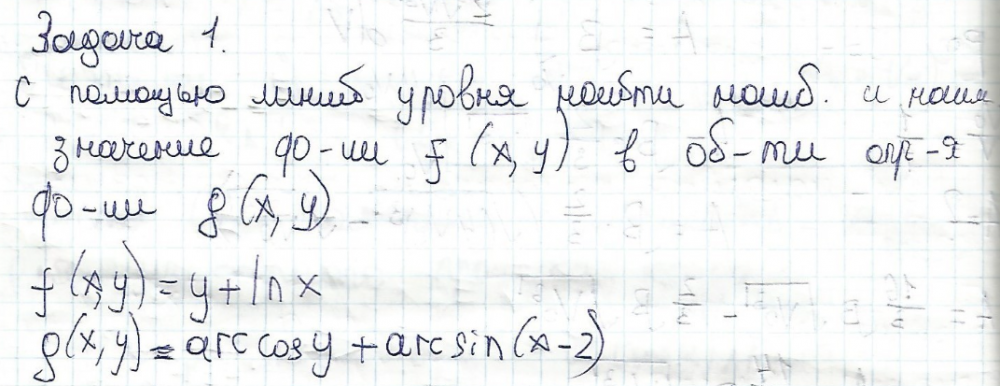 Задача 1.
С помощью линий уровня найти наиб. и наим
значение ф-ции f (x, y) в об-ти опр-я
ф-ции g(x, y)
f(x,y) = y + ln x
g(x, y) = arccosy + arcsin(x-2)